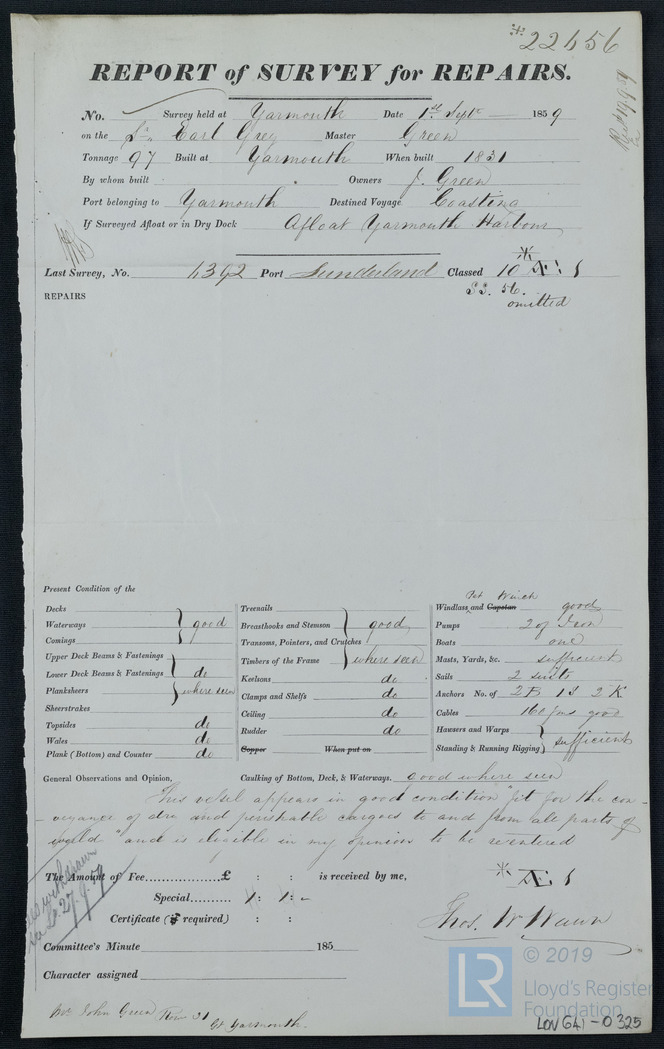 *22456
REPORT of SURVEY for REPAIRS.
No. Survey held at Yarmouth Date 1st Septr 1859
on the Sr Earl Grey Master Green
Tonnage 97 Built at Yarmouth When built 1831
By whom built Owners J. Green
Port belonging to Yarmouth Destined Voyage Coasting
If Surveyed Afloat or in Dry Dock Afloat Yarmouth Harbour
Last Survey, No. 4392 Port Sunderland Classed 10 * Æ 1
56.
omitted
REPAIRS
Present Condition of the
Decks
Waterways good
Comings
Upper Deck Beams & Fastenings
Lower Deck Beams & Fastenings do
Planksheers where seen
Sheerstrakes
Topsides do
Wales do
Plank (Bottom) and Counter do
Treenails
Breasthooks and Stemson good
Transoms, Pointers, and Crutches
Timbers of the Frame where seen
Keelsons do
Clamps and Shelfs do
Ceiling do
Rudder do
Copper When put on
Pat Winch
Windlass and Capstan good
Pumps 2 of Iron
Boats one
Masts, Yards, &c. sufficient
Sails 2 suits
Anchors No. of 2 B 1 S 2 K
Cables 160 fms good
Hausers and Warps
Standing & Running Rigging sufficient
General Observations and Opinion, Caulking of Bottom, Deck, & Waterways. good where seen
This vessel appears in good condition "fit for the con-
-veyance of dry and perishable cargoes to and from all parts of
world" and is eligible in my opinion to be reentered
* Æ 1
The Amount of Fee......... £ : : is received by me,
Special......... 1 : 1 : -
Certificate (if required) : :
Thos. W. Wawn
Committee's Minute 185
Character assigned
Mr John Green Row 31
Gt Yarmouth.
27.9.59
LR
© 2019
Lloyd's Register
Foundation
LON 641-0325